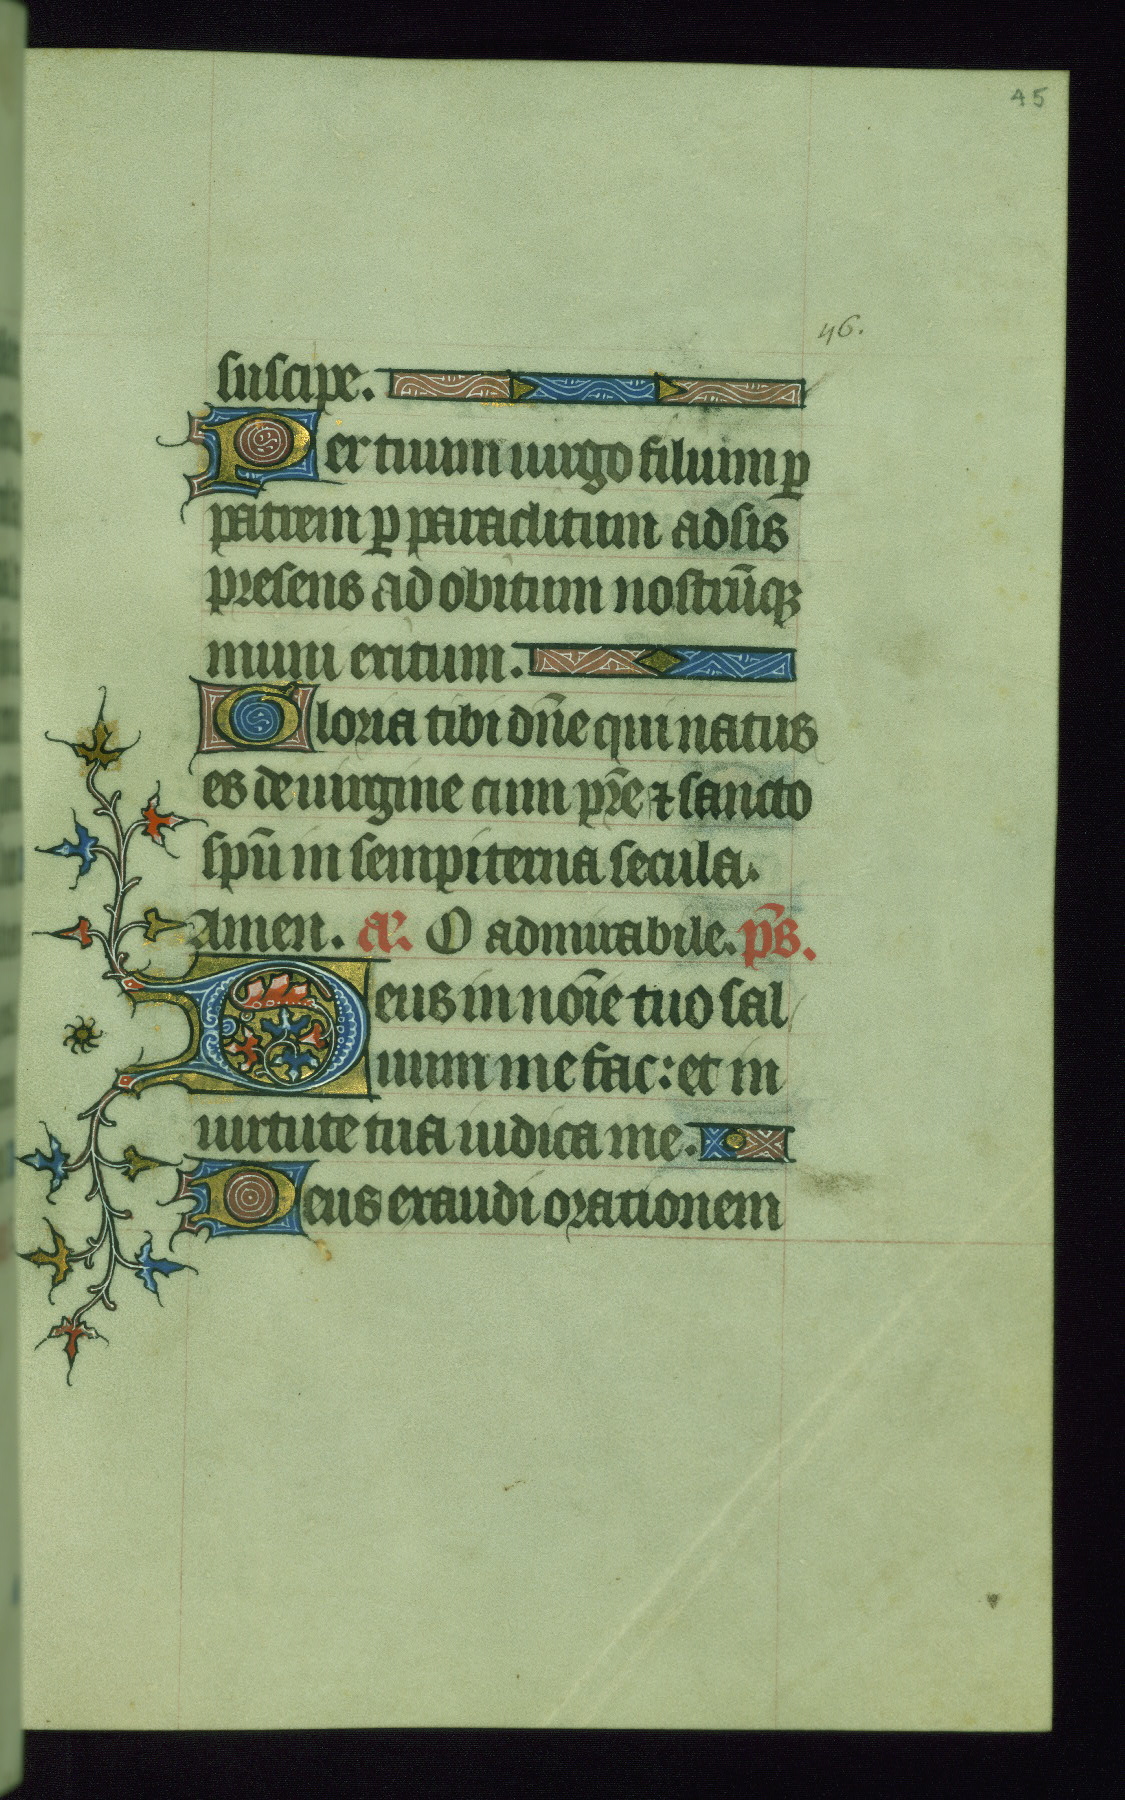 45
46.
suscipe.
Per tuum uirgo filium p̲
patrem p̲ paraclitum adsis
presens ad obitum nostrūq̨
muni exitum.
Gloria tibi dn̄e qui natus
es de uirgine cum pr̄e ⁊ sancto
spū in sempiterna secula.
Amen. añ. O admirabile. p̄s.
Deus in nōie tuo sal
uum me fac: et in
uirtute tua iudica me.
Deus exaudi orationem